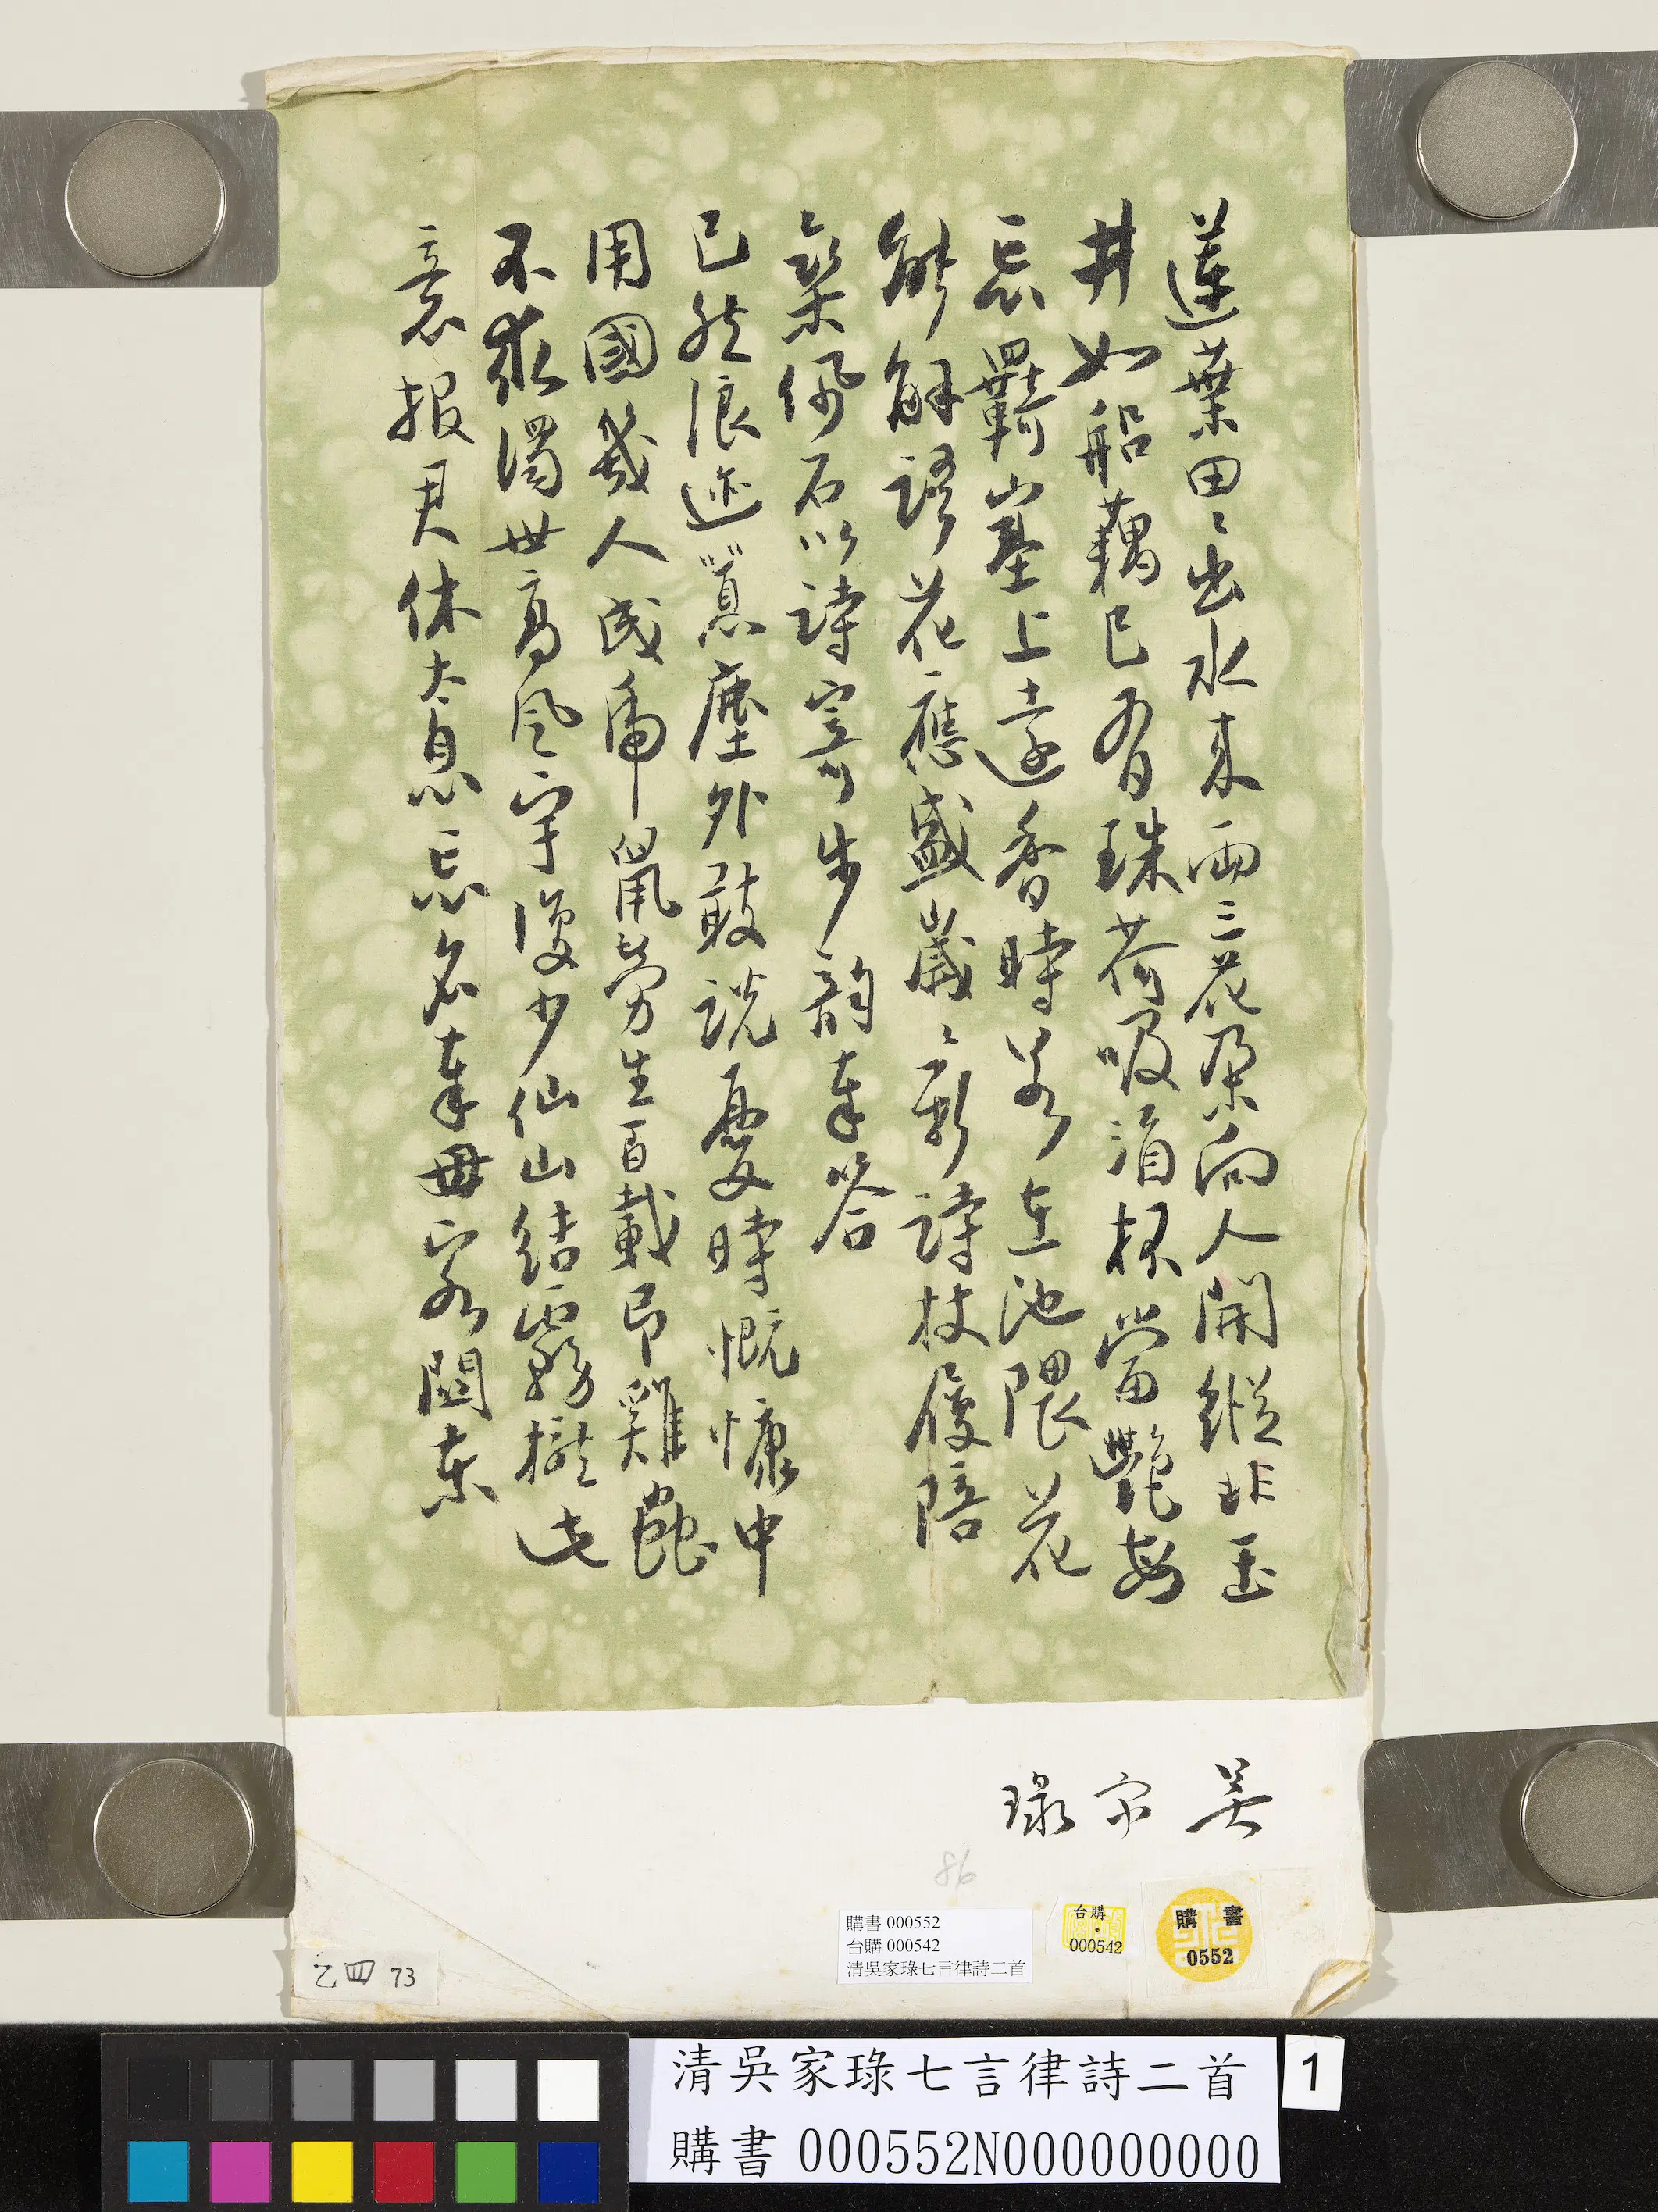 蓮葉田〻出水來兩三花朶向人開縱非玉
井如船藕已有珠荷吸酒杯當艷每
忘羈臺上遠香時若在池隈花
能解語花應盛歲〻新詩杖履陪
佩石以詩寄步韵奉答
已然浪迹寘塵外敢説憂時慨慷中
用國幾人成虎鼠勞生百載即雞蟲
不求濁世高風宇復少仙山結霧櫳此
意報君休太息忘名奉母客閩東
吳家琭
86
購書 000552
台購 000542
清吳家琭七言律詩二首
台購
000542
購書
0552
乙四 73
清吳家琭七言律詩二首
購書 000552N000000000
1